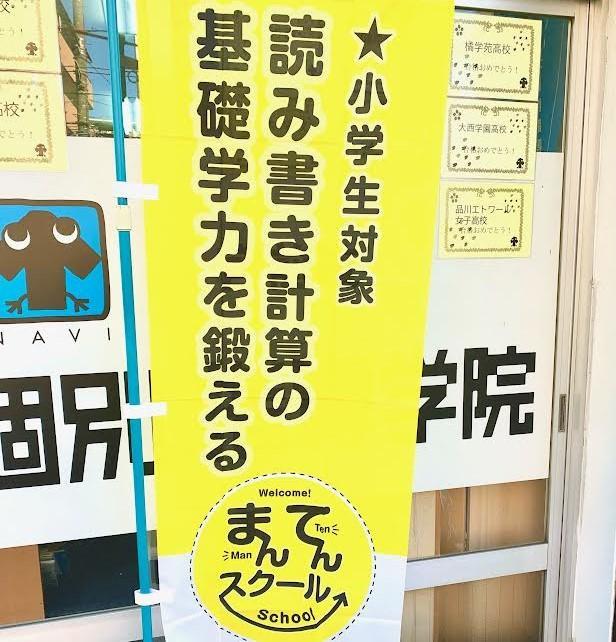 ★小学生対象
読み書き計算の
基礎学力を鍛える
Welcome!
まんてん
Man
Ten
スクール
School
NAVI
個別
学院
橘学苑高校
合格おめでとう！
大西学園高校
合格おめでとう！
品川エトワール
女子高校
合格おめでとう！
高校